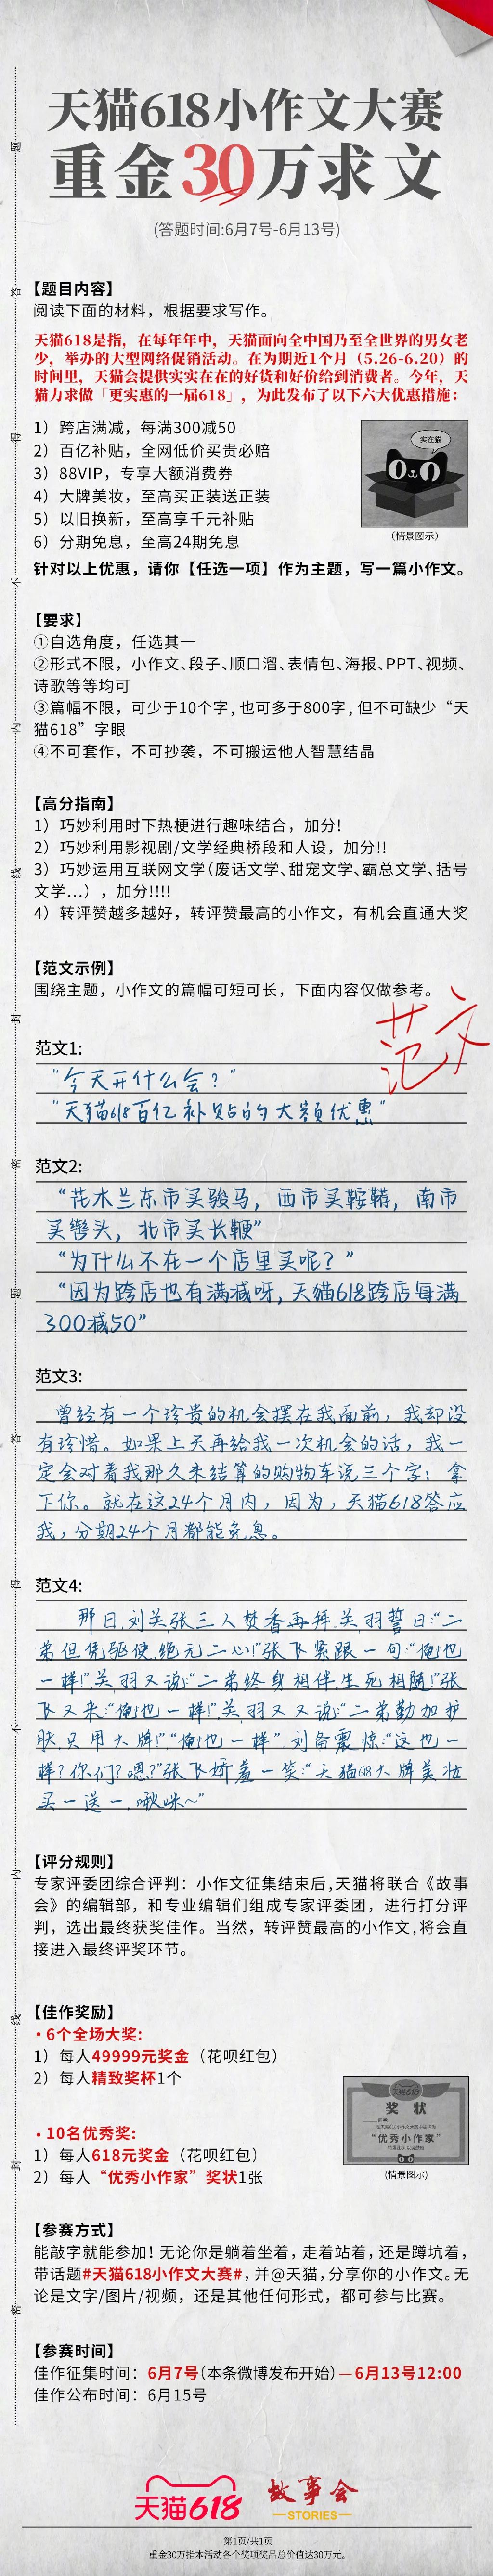 天猫618小作文大赛
重金30万求文
(答题时间:6月7号-6月13号)
【题目内容】
阅读下面的材料，根据要求写作。
天猫618是指，在每年年中，天猫面向全中国乃至全世界的男女老
少，举办的大型网络促销活动。在为期近1个月（5.26-6.20）的
时间里，天猫会提供实实在在的好货和好价给到消费者。今年，天
猫力求做「更实惠的一届618」，为此发布了以下六大优惠措施：
1）跨店满减，每满300减50
2）百亿补贴，全网低价买贵必赔
3）88VIP，专享大额消费券
4）大牌美妆，至高买正装送正装
5）以旧换新，至高享千元补贴
6）分期免息，至高24期免息
实在猫
（情景图示）
针对以上优惠，请你【任选一项】作为主题，写一篇小作文。
【要求】
①自选角度，任选其一
②形式不限，小作文、段子、顺口溜、表情包、海报、PPT、视频、
诗歌等等均可
③篇幅不限，可少于10个字，也可多于800字，但不可缺少“天
猫618”字眼
④不可套作，不可抄袭，不可搬运他人智慧结晶
【高分指南】
1）巧妙利用时下热梗进行趣味结合，加分!
2）巧妙利用影视剧/文学经典桥段和人设，加分!!
3）巧妙运用互联网文学（废话文学、甜宠文学、霸总文学、括号
文学...），加分!!!!
4）转评赞越多越好，转评赞最高的小作文，有机会直通大奖
【范文示例】
围绕主题，小作文的篇幅可短可长，下面内容仅做参考。
范文
范文1:
"今天开什么会？"
"天猫618百亿补贴的大额优惠"
范文2:
“花木兰东市买骏马，西市买鞍鞯，南市
买辔头，北市买长鞭”
“为什么不在一个店里买呢？”
“因为跨店也有满减呀，天猫618跨店每满
300减50”
范文3:
曾经有一个珍贵的机会摆在我面前，我却没
有珍惜。如果上天再给我一次机会的话，我一
定会对着我那久未结算的购物车说三个字：拿
下你。就在这24个月内，因为，天猫618答应
我，分期24个月都能免息。
范文4:
那日,刘关张三人焚香再拜.关羽誓曰:“二
弟但凭驱使,绝无二心!”张飞紧跟一句:“俺也
一样!”关羽又说:“二弟终身相伴,生死相随!”张
飞又来:“俺也一样!”关羽又又说:“二弟勤加护
肤,只用大牌!”“俺也一样”.刘备震惊:“这也一
样?你们?嗯?”张飞娇羞一笑:“天猫618大牌美妆
买一送一,啾咪~”
【评分规则】
专家评委团综合评判：小作文征集结束后，天猫将联合《故事
会》的编辑部，和专业编辑们组成专家评委团，进行打分评
判，选出最终获奖佳作。当然，转评赞最高的小作文,将会直
接进入最终评奖环节。
【佳作奖励】
·6个全场大奖:
1）每人49999元奖金（花呗红包）
2）每人精致奖杯1个
·10名优秀奖:
1）每人618元奖金（花呗红包）
2）每人“优秀小作家”奖状1张
天猫618
奖状
“优秀小作家”
(情景图示)
【参赛方式】
能敲字就能参加！无论你是躺着坐着，走着站着，还是蹲坑着，
带话题#天猫618小作文大赛#，并@天猫，分享你的小作文。无
论是文字/图片/视频，还是其他任何形式，都可参与比赛。
【参赛时间】
佳作征集时间：6月7号（本条微博发布开始）—6月13号12:00
佳作公布时间：6月15号
天猫618
故事会
STORIES
第1页/共1页
重金30万指本活动各个奖项奖品总价值达30万元。
题
答
得
不
内
线
封
密
题
答
得
不
内
线
封
密